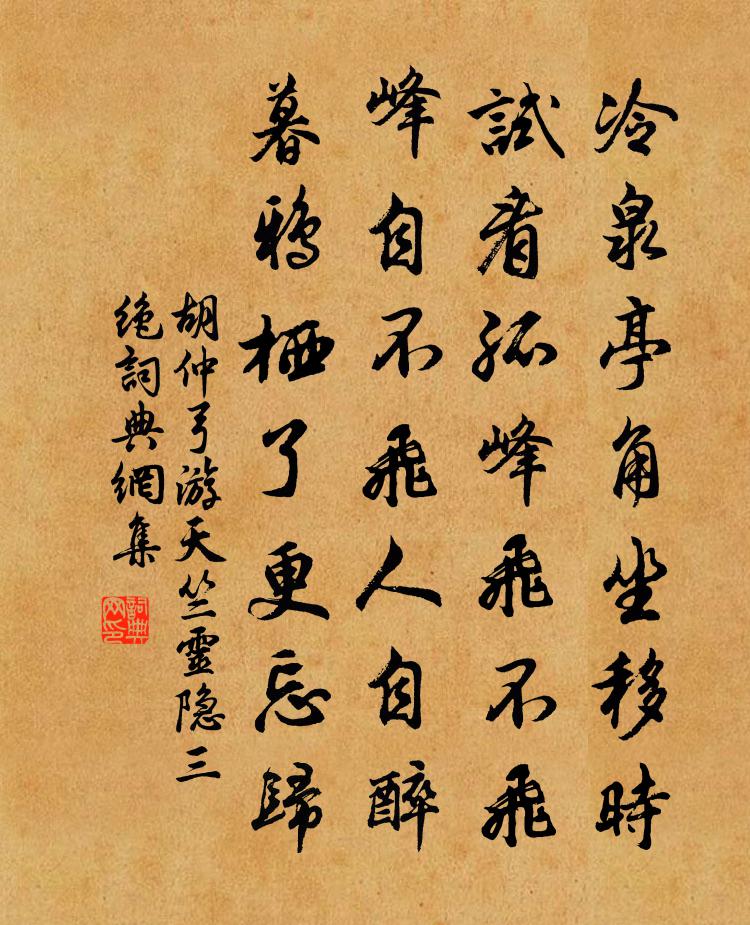 冷泉亭角坐移時
試看孤峰飛不飛
峰自不飛人自醉
暮鴉栖了更忘歸
胡仲弓游天竺靈隐三
絶詞典網集
詞典網印